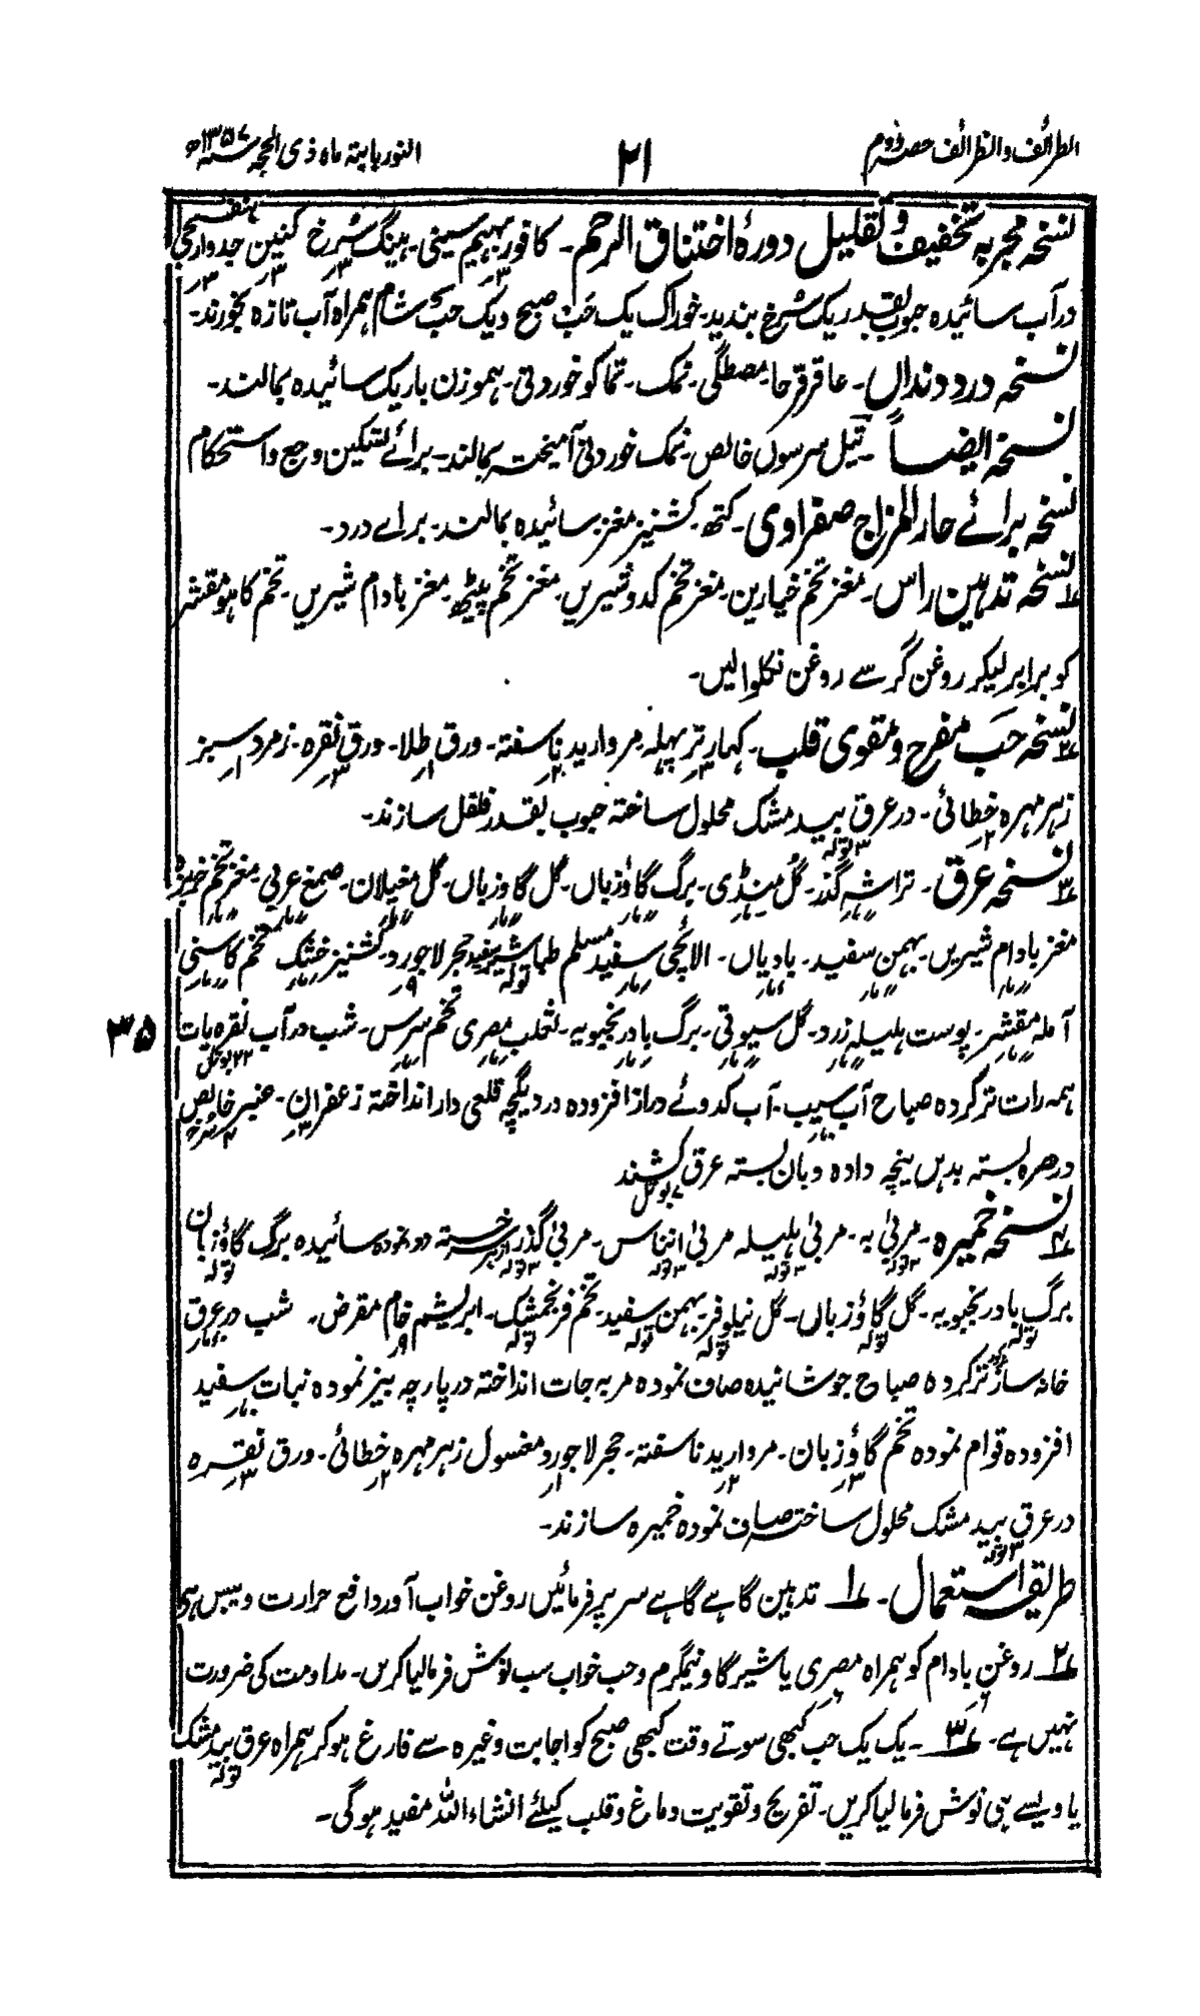 الطرائف والظرائف حصہ دوم
۲۱
النور بابتہ ماہ ذی الحجہ سنہ ۱۳۵۷ھ
نسخہ مجربہ تخفیف و تقلیل دورۂ اختناق الرحم۔ کافور بھیم سینی۔ ہینگ سُرخ کنین جدوار بنفسجی
۳ر ۳ر ۳ر ۳ر
در آب سائیدہ حبوب بقدر یک سُرخ بندید۔ خوراک یک حَب صبح و یک حَب شام ہمراہ آب تازہ بخورند۔
نسخہ درد دنداں۔ عاقر قرحا۔ مصطگی۔ نمک۔ تماکو خوردنی۔ ہموزن باریک سائیدہ بمالند۔
نسخہ ایضاً۔ تیل سرسوں خالص۔ نمک خوردنی آمیختہ بمالند۔ برائے تسکین وجع و استحکام
نسخہ برائے حار المزاج صفراوی۔ کتھ۔ کشنیز مغز سائیدہ بمالند۔ براے درد۔
۱؎ نسخہ تدہین راس۔ مغز تخم خیارین۔ مغز تخم کدو شیریں۔ مغز تخم پیٹھ۔ مغز بادام شیریں۔ تخم کاہو مقشر
کو برابر لیکر روغن گر سے روغن نکلوالیں۔
۲؎ نسخہ حَب مفرح و مقوی قلب۔ مروارید ناسفتہ۔ ورق طلا۔ ورق نقرہ۔ زمرد سبز
زہر مہرہ خطائی۔ در عرق بید مشک محلول ساختہ حبوب بقدر فلفل سازند۔
۲ر ۳ تولہ
۳؎ نسخہ عرق۔ تراشہ گذر۔ گُل منڈی۔ برگ گاؤزباں۔ گل گاوزباں۔ گل مغیلان۔ صمغ عربی۔ مغز تخم خربزہ
مغز بادام شیریں۔ بہمن سفید۔ بادیاں۔ الائچی سفید مسلم طباشیر سفید حجر لاجورد۔ کشنیز خشک تخم کاسنی
آملہ مقشر۔ پوست ہلیلہ زرد۔ گل سیوتی۔ برگ بادرنجبویہ۔ ثعلب مصری تخم سرس۔ شب در آب نقرہ یات
۳۵
۲۲ بوتل
ہمہ رات تر کردہ صباح آب سیب۔ آب کدوئے دراز افزودہ در دیگچہ قلعی دار انداختہ زعفران۔ عنبر خالص
در صرہ بستہ بدہن نیچہ دادہ و بان بستہ عرق کشند
۷ بوتل
۴؎ نسخہ خمیرہ۔ مربیٰ بہ۔ مربیٰ ہلیلہ مربیٰ انناس۔ مربیٰ گذر از خستہ دور نمودہ سائیدہ برگ گاؤزبان
۳ تولہ ۳ تولہ ۳ تولہ ۳ تولہ تولہ
برگ بادرنجبویہ۔ گل گاؤزباں۔ گل نیلوفر۔ بہمن سفید۔ تخم فرنجمشک۔ ابریشم خام مقرض۔ شب در عرق
تولہ تولہ تولہ تولہ تولہ
خانہ ساز تر کردہ صباح جوشانیدہ صاف نمودہ مربہ جات انداختہ در پارچہ بیز نمودہ نبات سفید
افزودہ قوام نمودہ تخم گاؤزبان۔ مروارید ناسفتہ۔ حجر لاجورد مغسول زہر مہرہ خطائی۔ ورق نقرہ
۳ر ۲ر ۱ر ۲ر ۳ر
در عرق بید مشک محلول ساختہ صاف نمودہ خمیرہ سازند۔
۳ تولہ
طریقہ استعمال۔ ۱؎ تدہین گاہے گاہے سر پر فرمائیں روغن خواب آور دافع حرارت و یبس ہی
۲؎ روغن بادام کو ہمراہ مصری یا شیر گاو نیمگرم وحب خواب سب نوش فرمالیا کریں۔ مداومت کی ضرورت
نہیں ہے۔ ۳؎۔ یک یک حب کبھی سوتے وقت کبھی صبح کو اجابت وغیرہ سے فارغ ہو کر ہمراہ عرق بید مشک
تولہ
یا ویسے ہی نوش فرما لیا کریں۔ تفریح و تقویت دماغ و قلب کیلئے انشاء اللہ مفید ہو گی۔